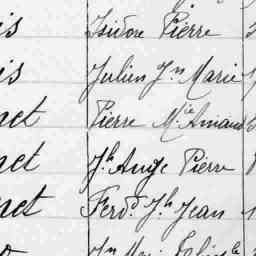 is Isidore Pierre
is Julien Jn Marie
net Pierre Mie Amand
net Jh Ange Pierre
net Ferd. Jh Jean
Jn Mie